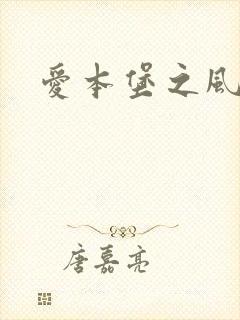 爱本堡之風
唐嘉亮